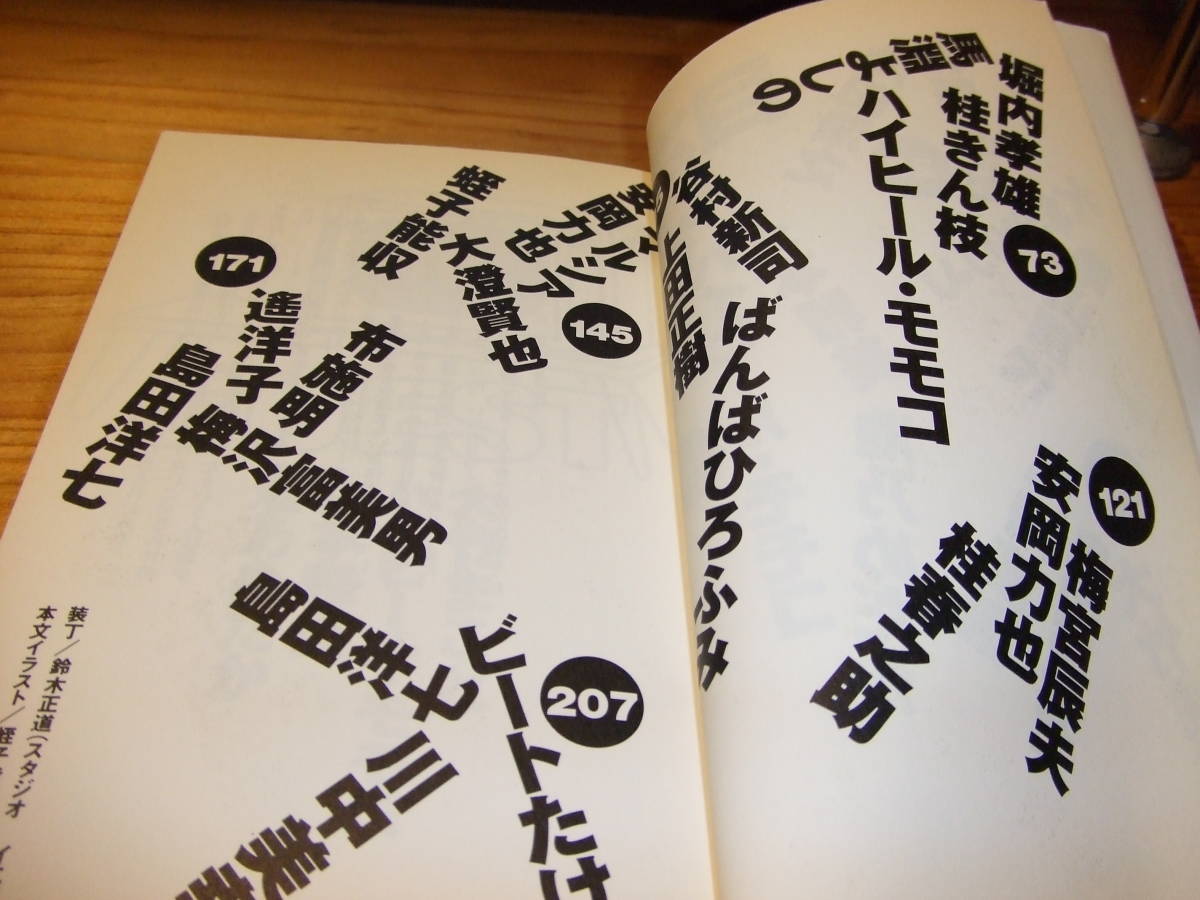 堀内孝雄
73
桂きん枝
馬淵よしの
ハイヒール・モモコ
121
梅宮辰夫
安岡力也
桂春之助
谷村新司
ばんばひろふみ
上田正樹
145
ルシア
安岡力也
大澄賢也
蛭子能収
171
遙洋子
島田洋七
布施明
梅沢富美男
207
ビートたけ
島田洋七
川中美
装丁/鈴木正道(スタジオ
本文イラスト/蛭子